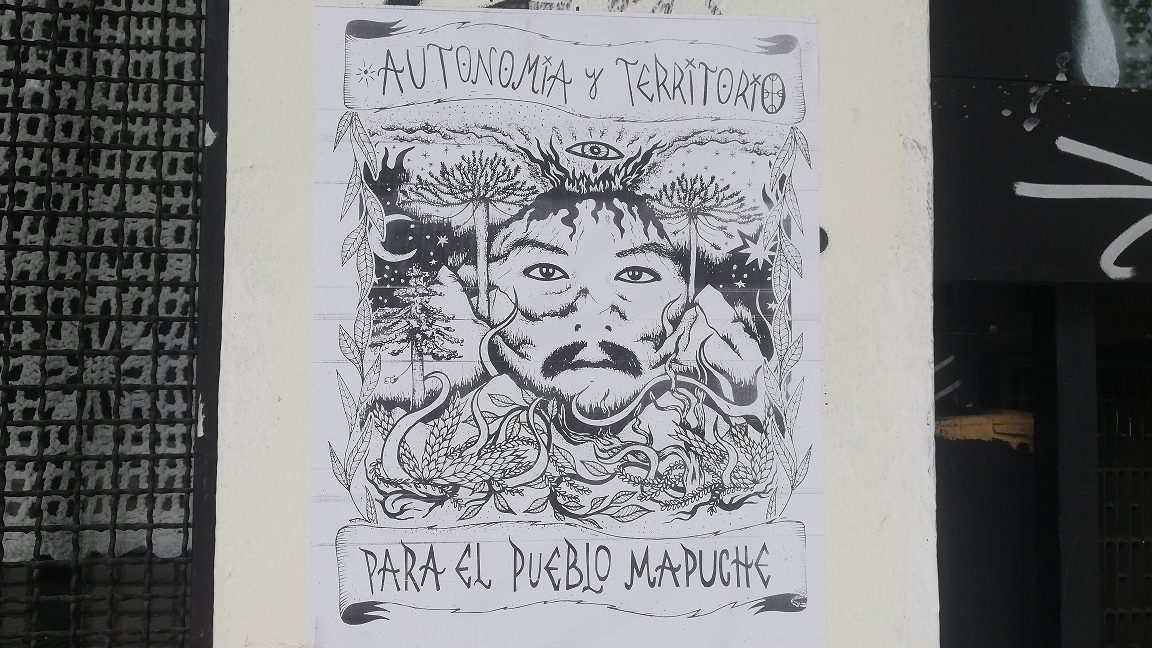 AUTONOMIA y TERRITORIO
PARA EL PUEBLO MAPUCHE